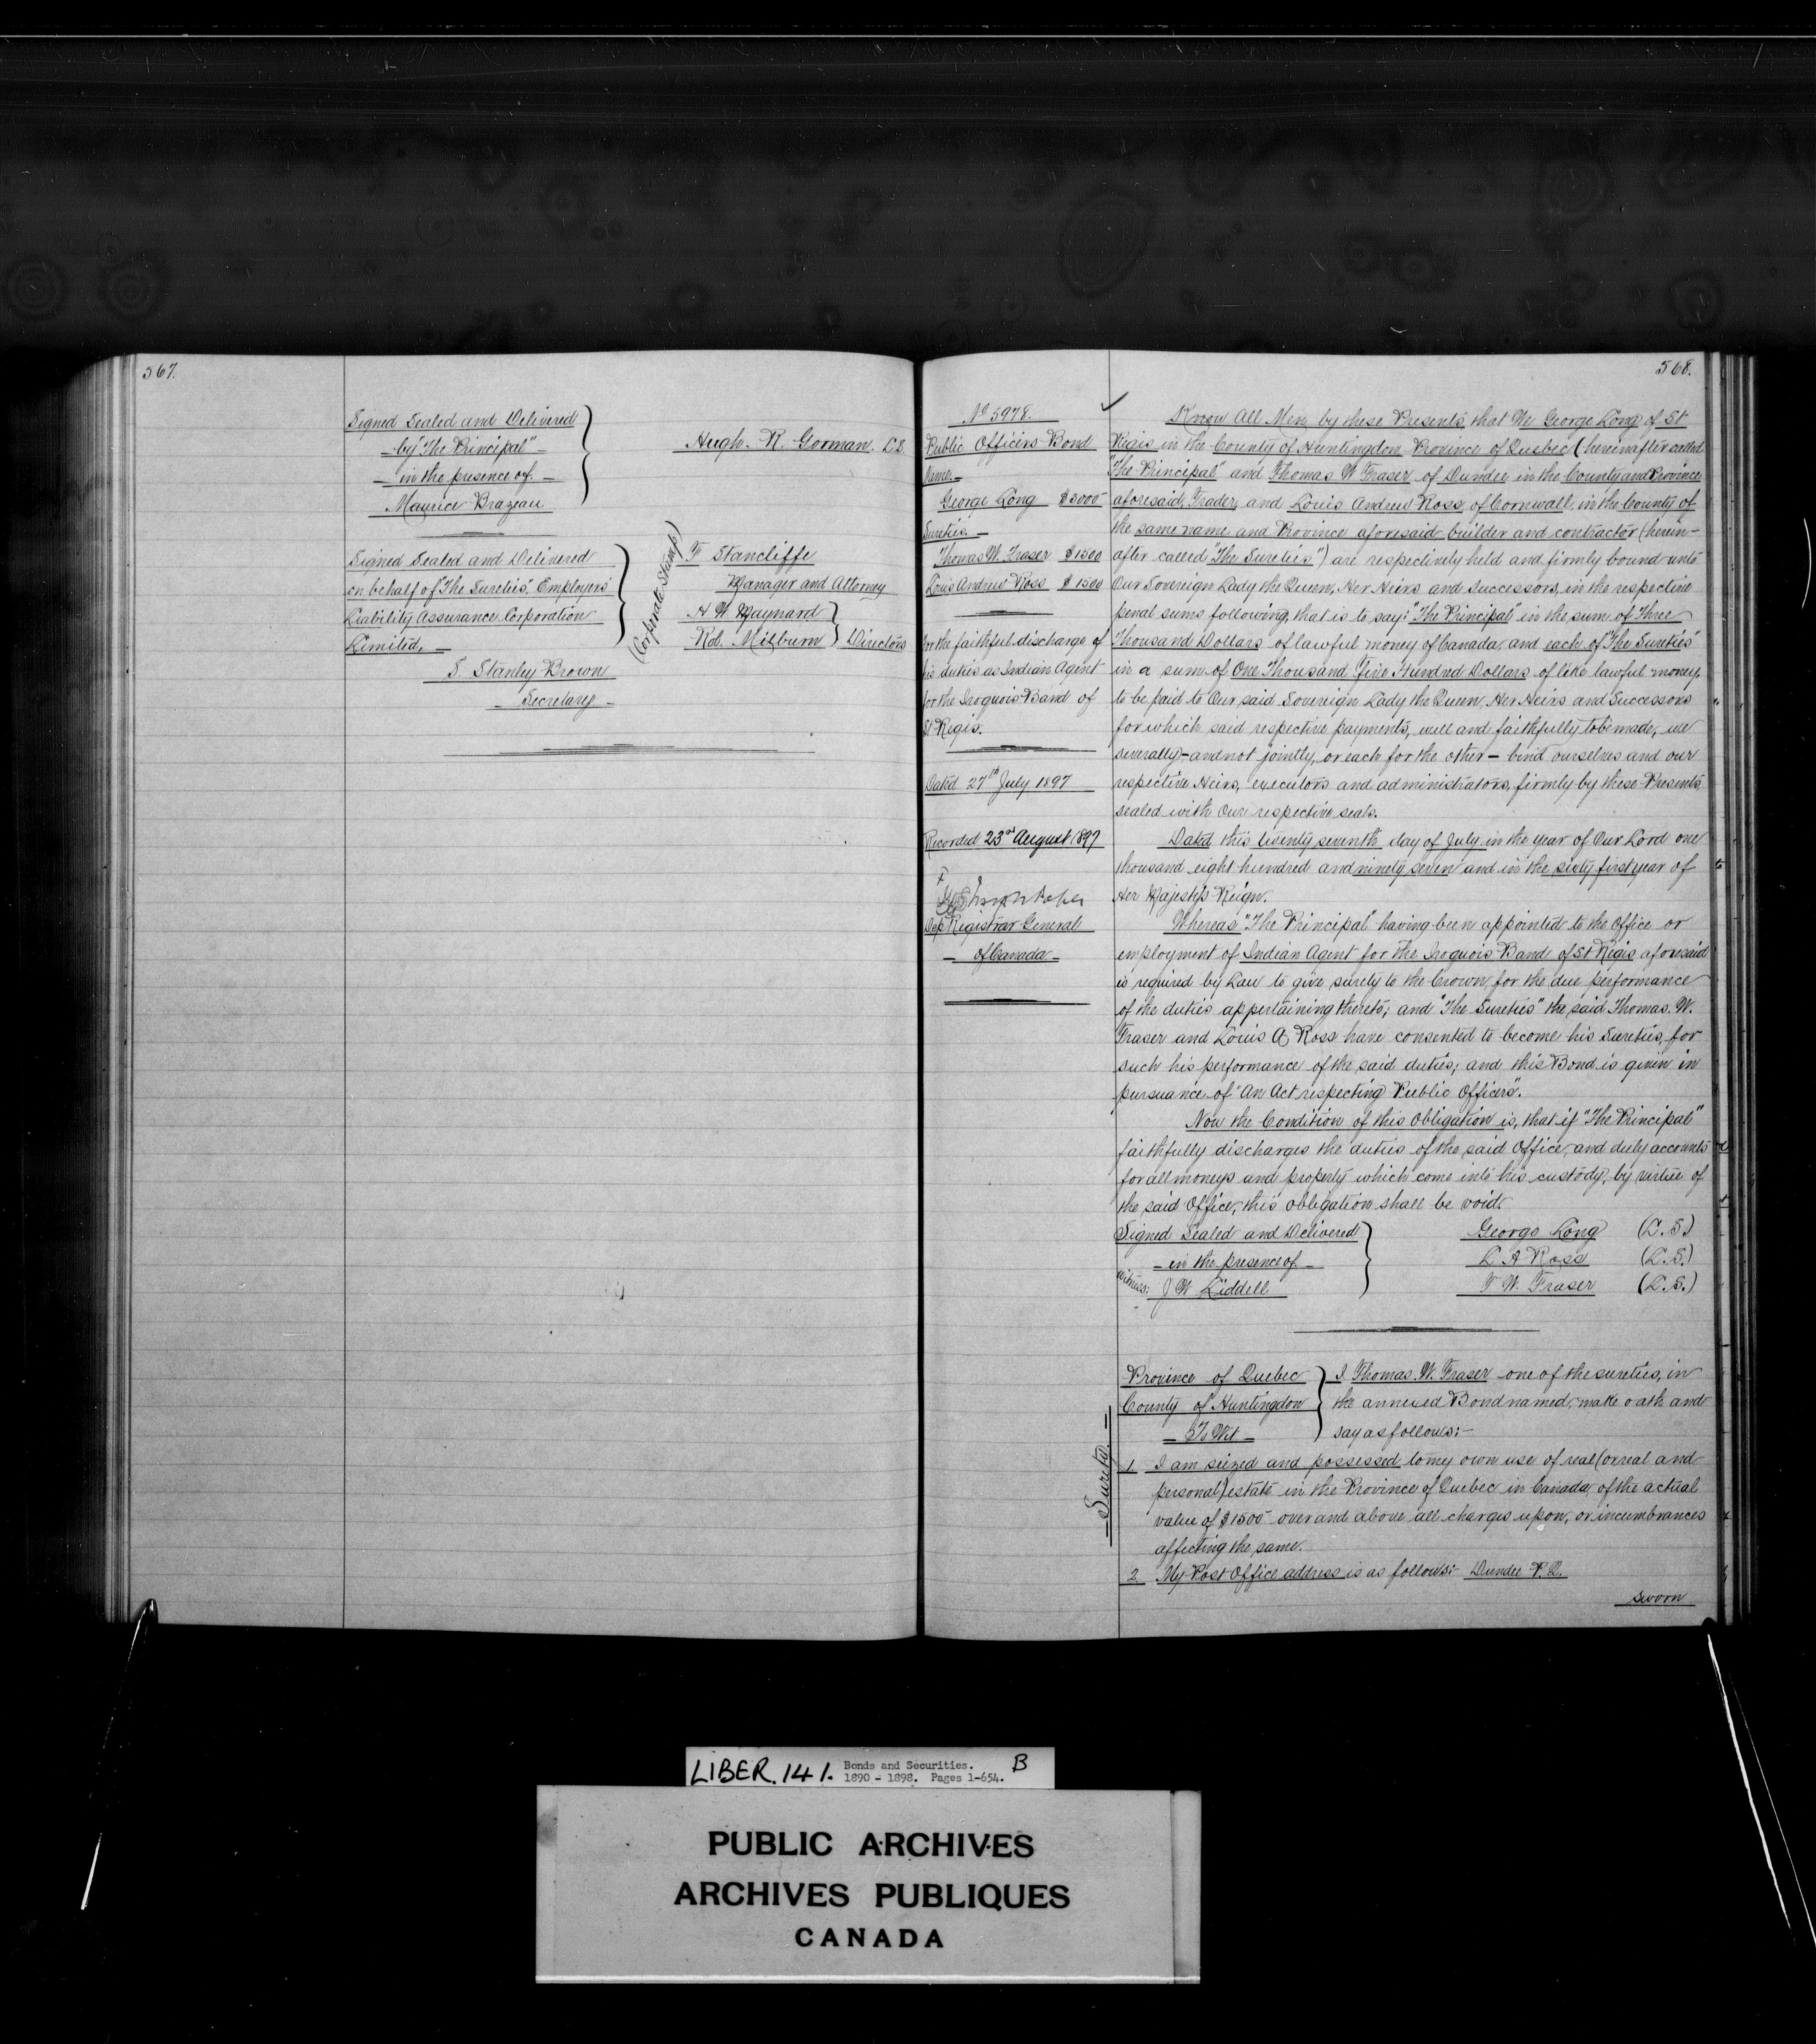 567.
Signed Sealed and Delivered
by "The Principal"
in the presence of
Maurice Brazeau
Hugh. R. Gorman. L.S.
Signed Sealed and Delivered
on behalf of "The Sureties", Employers'
Liability Assurance Corporation
Limited,
S. Stanley Brown
Secretary
(Corporate Stamp)
F. Stancliffe
Manager and Attorney
A W Maynard
Rob. Milburn } Directors
568.
No 5978.
Public Officers Bond
Name.
George Long $3000
Sureties.
Thomas W. Fraser $1500
Louis Andrew Ross $1500
for the faithful discharge of
his duties as Indian Agent
for the Iroquois Band of
St Regis.
Dated 27th July 1897
Recorded 23rd August 1897
Dep Registrar General
of Canada
Know All Men by these Presents, that We George Long of St
Regis in the County of Huntingdon Province of Quebec (hereinafter called
"The Principal" and Thomas W Fraser of Dundee in the County and Province
aforesaid, Trader, and Louis Andrew Ross, of Cornwall, in the County of
the same name and Province aforesaid builder and contractor (herein-
after called "The Sureties") are respectively held and firmly bound unto
Our Sovereign Lady the Queen, Her Heirs and Successors, in the respective
penal sums following, that is to say: "The Principal" in the sum of Three
Thousand Dollars of lawful money of Canada, and each of "The Sureties"
in a sum of One Thousand Five Hundred Dollars of like lawful money,
to be paid to Our said Sovereign Lady the Queen, Her Heirs and Successors
for which said respective payments, well and faithfully to be made, we
severally - and not jointly, or each for the other - bind ourselves and our
respective Heirs, executors and administrators, firmly by these Presents,
sealed with Our respective seals.
Dated this twenty seventh day of July in the year of Our Lord one
thousand eight hundred and ninety seven and in the sixty first year of
Her Majesty's Reign.
Whereas "The Principal" having been appointed to the Office or
employment of Indian Agent for the Iroquois Band of St Regis aforesaid
is required by Law to give surety to the Crown for the due performance
of the duties appertaining thereto; and "The Sureties" the said Thomas. W.
Fraser and Louis A Ross have consented to become his Sureties, for
such his performance of the said duties; and this Bond is given in
pursuance of "An Act respecting Public Officers".
Now the Condition of this obligation is, that if "The Principal"
faithfully discharges the duties of the said Office, and duly accounts
for all moneys and property which come into his custody, by virtue of
the said Office, this obligation shall be void.
Signed Sealed and Delivered
in the presence of
Witness: J W Liddell
George Long (L.S.)
L A Ross (L.S.)
T W. Fraser (L.S.)
Surety.
Province of Quebec
County of Huntingdon
To Wit
I Thomas. W. Fraser one of the sureties, in
the annexed Bond named, make oath and
say as follows:-
1. I am seized and possessed to my own use of real (or real and
personal) estate in the Province of Quebec in Canada of the actual
value of $1500 over and above all charges upon, or incumbrances
affecting the same.
2. My Post Office address is as follows:- Dundee P.Q.
sworn
LIBER. 141. Bonds and Securities. B
1890 - 1898. Pages 1-654.
PUBLIC ARCHIVES
ARCHIVES PUBLIQUES
CANADA